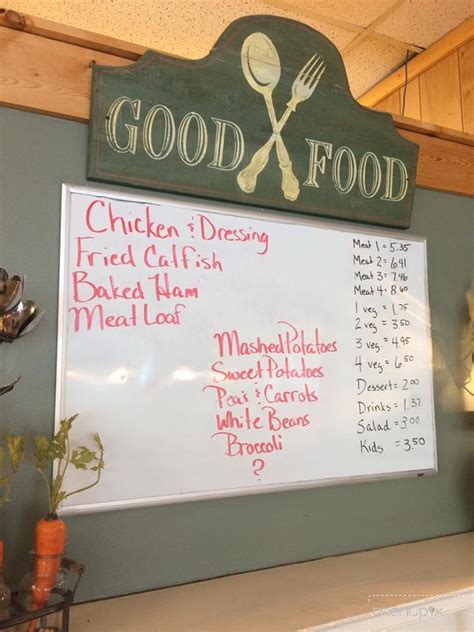 GOOD FOOD
Chicken & Dressing
Fried Catfish
Baked Ham
Meat Loaf
Mashed Potatoes
Sweet Potatoes
Peas & Carrots
White Beans
Broccoli
?
Meat 1 = 5.35
Meat 2 = 6.41
Meat 3 = 7.46
Meat 4 =
1 veg = 1.75
2 veg = 3.50
3 veg = 4.95
4 veg = 6.50
Dessert = 2.00
Drinks = 1.37
Salad = 3.00
Kids = 3.50
menupix